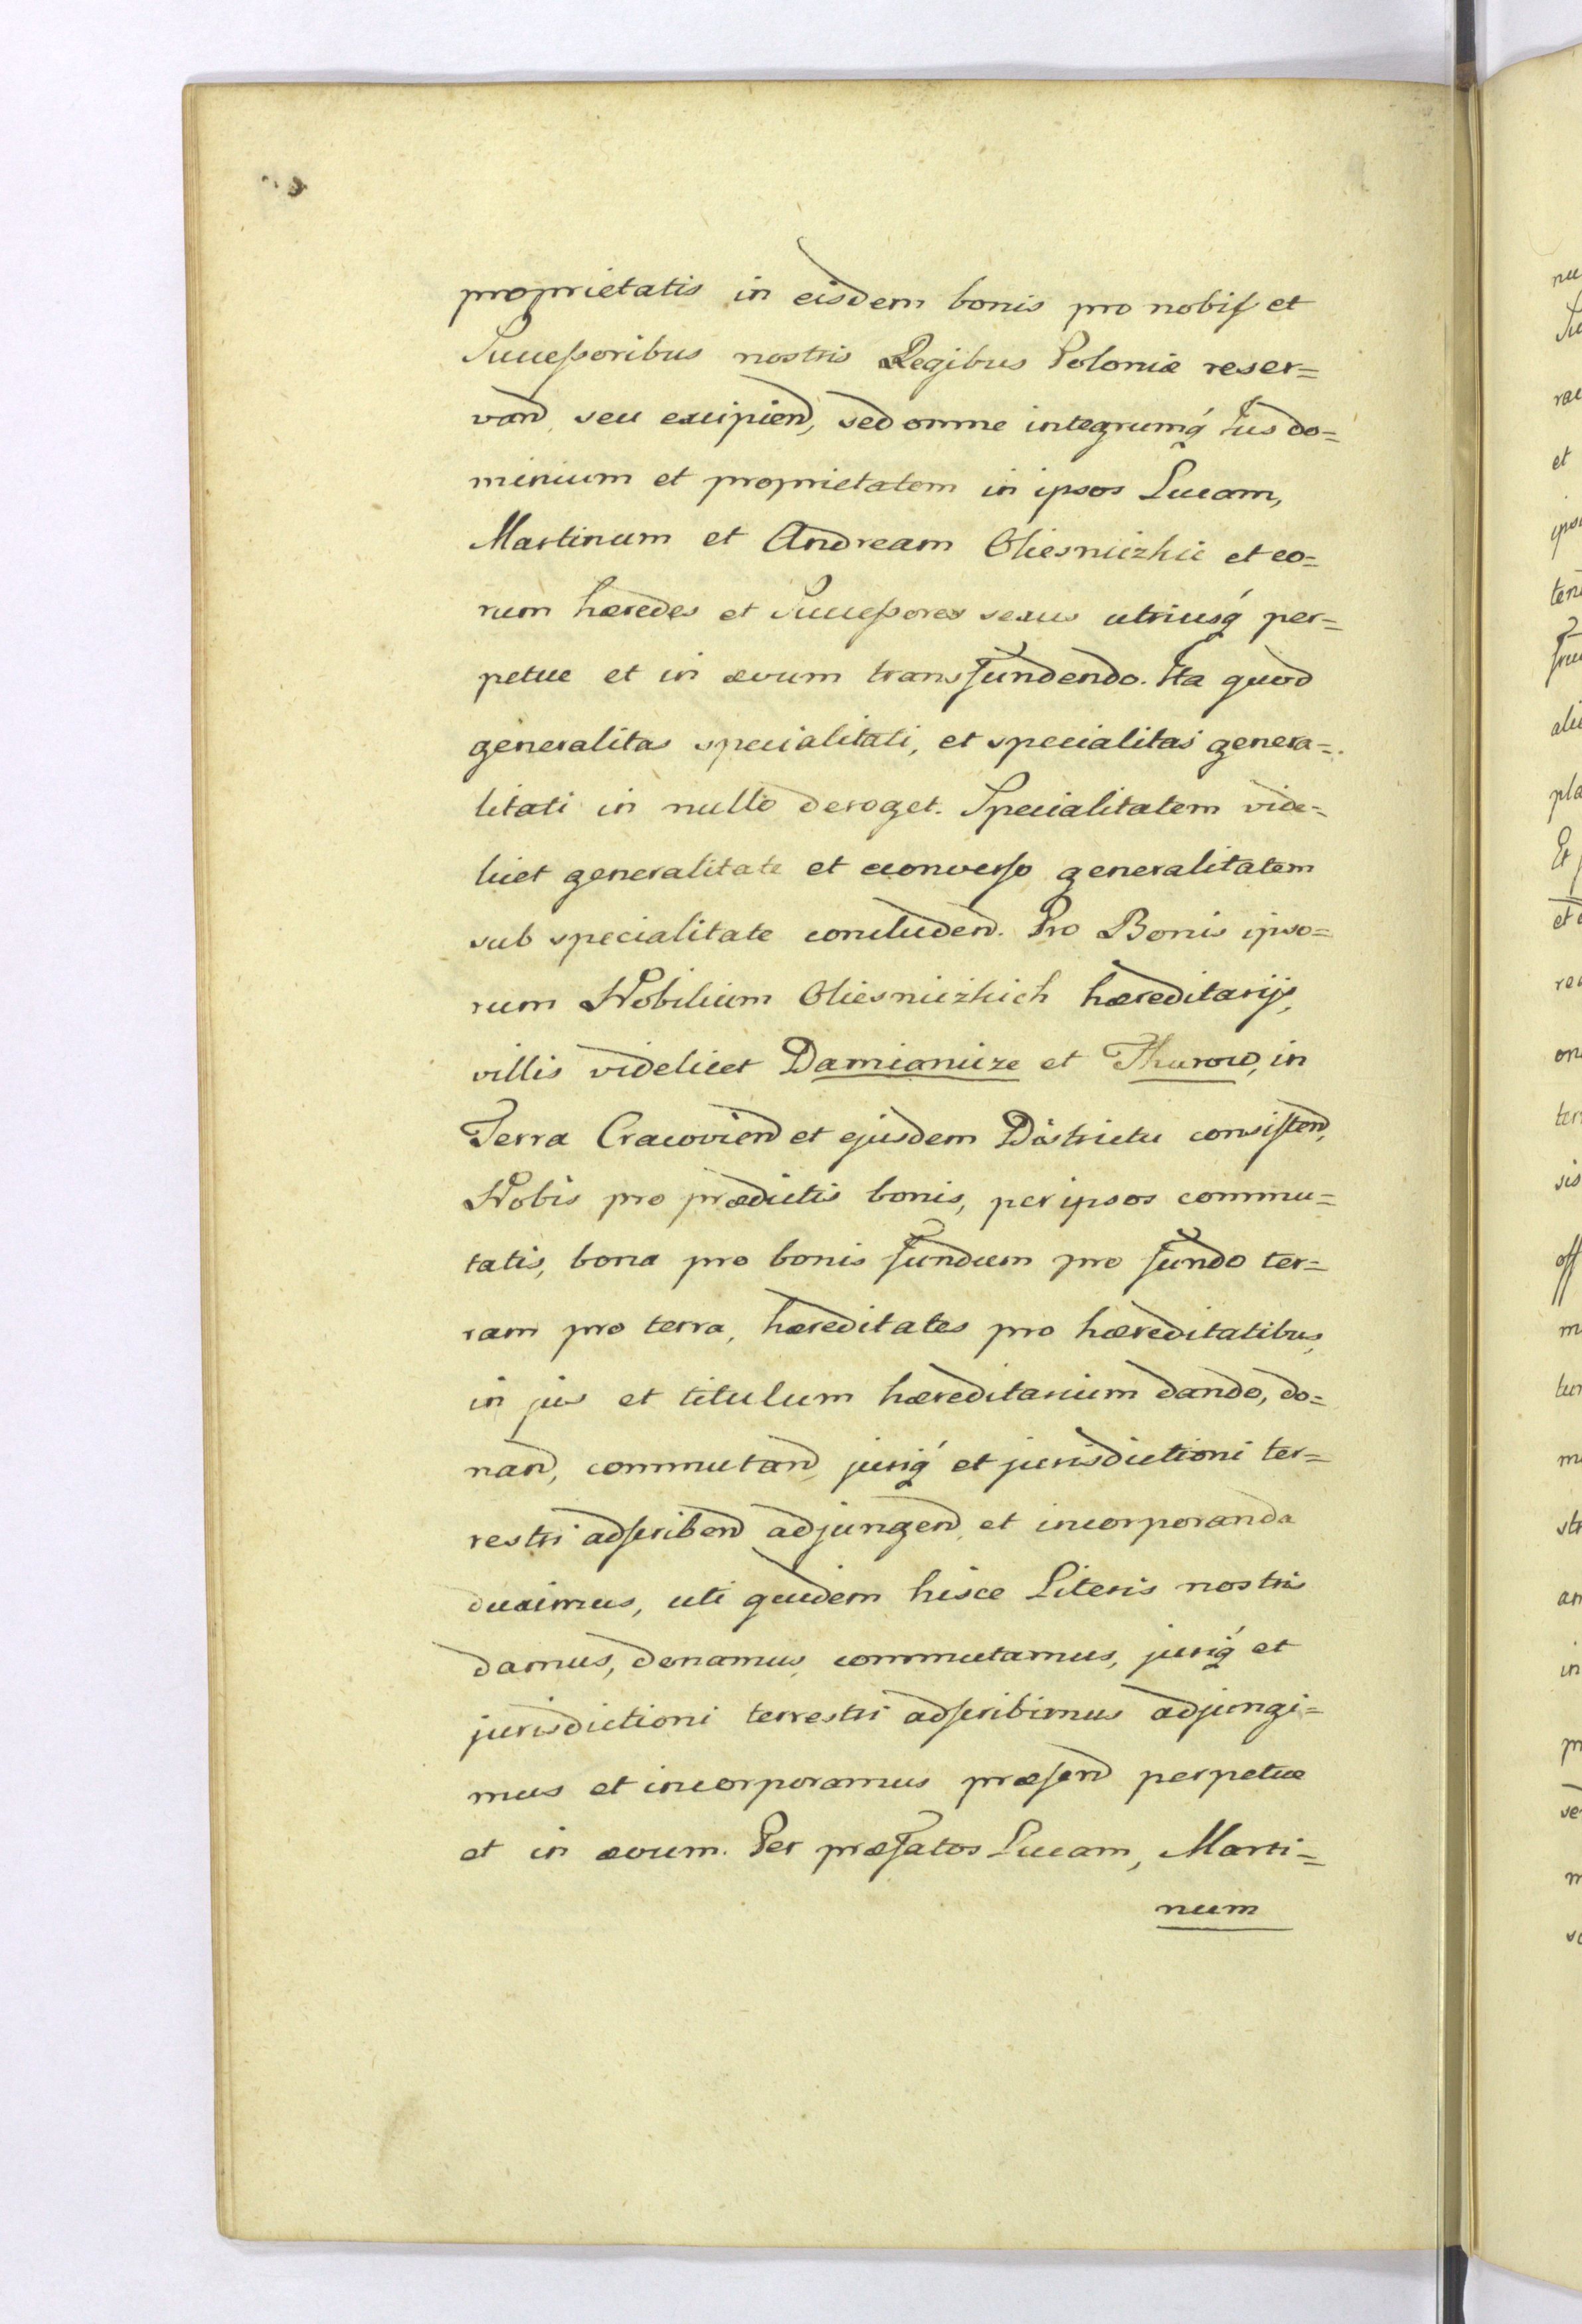 proprietatis in eisdem bonis pro nobis et
Successoribus nostris Regibus Poloniæ reser=
vand, seu excipiend, sed omne integrumq́ Jus do=
minium et proprietatem in ipsos Lucam,
Martinum et Andream Oliesniczkie et eo=
rum hæredes et Successores sexus utriusq́ per=
petue et in ævum transfundendo. Ita quod
generalitas specialitati, et specialitas genera=
litati in nullo deroget. Specialitatem vide=
licet generalitate et econverso generalitatem
sub specialitate concludend. Pro Bonis ipso=
rum Nobilium Oliesniczkich hæreditarijs,
villis videlicet Damianicze et Thurow, in
Terra Cracoviend et ejusdem Districtu consistend,
Nobis pro prædictis bonis, per ipsos commu=
tatis, bona pro bonis fundum pro fundo ter=
ram pro terra, hæreditates pro hæreditatibus,
in jus et titulum hæreditarium dando, do=
nand, commutand, juriq́ et jurisdictioni ter=
restri adscribend adjungend et incorporanda
duximus, uti quidem hisce Literis nostris
damus, donamus, commutamus, juriq́ et
jurisdictioni terrestri adscribimus adjungi=
mus et incorporamus præsend perpetue
et in ævum. Per præfatos Lucam, Marti=
num